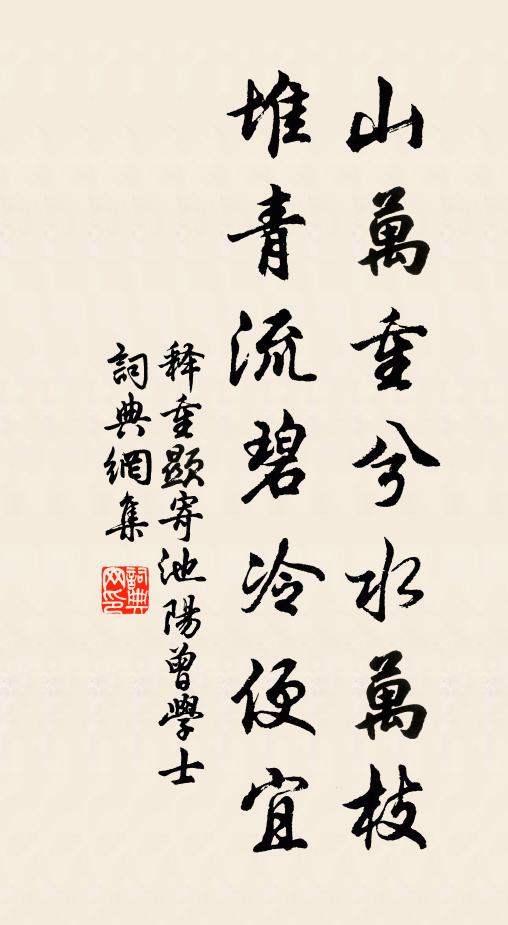 山萬重兮水萬枝
堆青流碧冷便宜
釋重顯寄池陽曾學士
詞典網集
詞典
网印